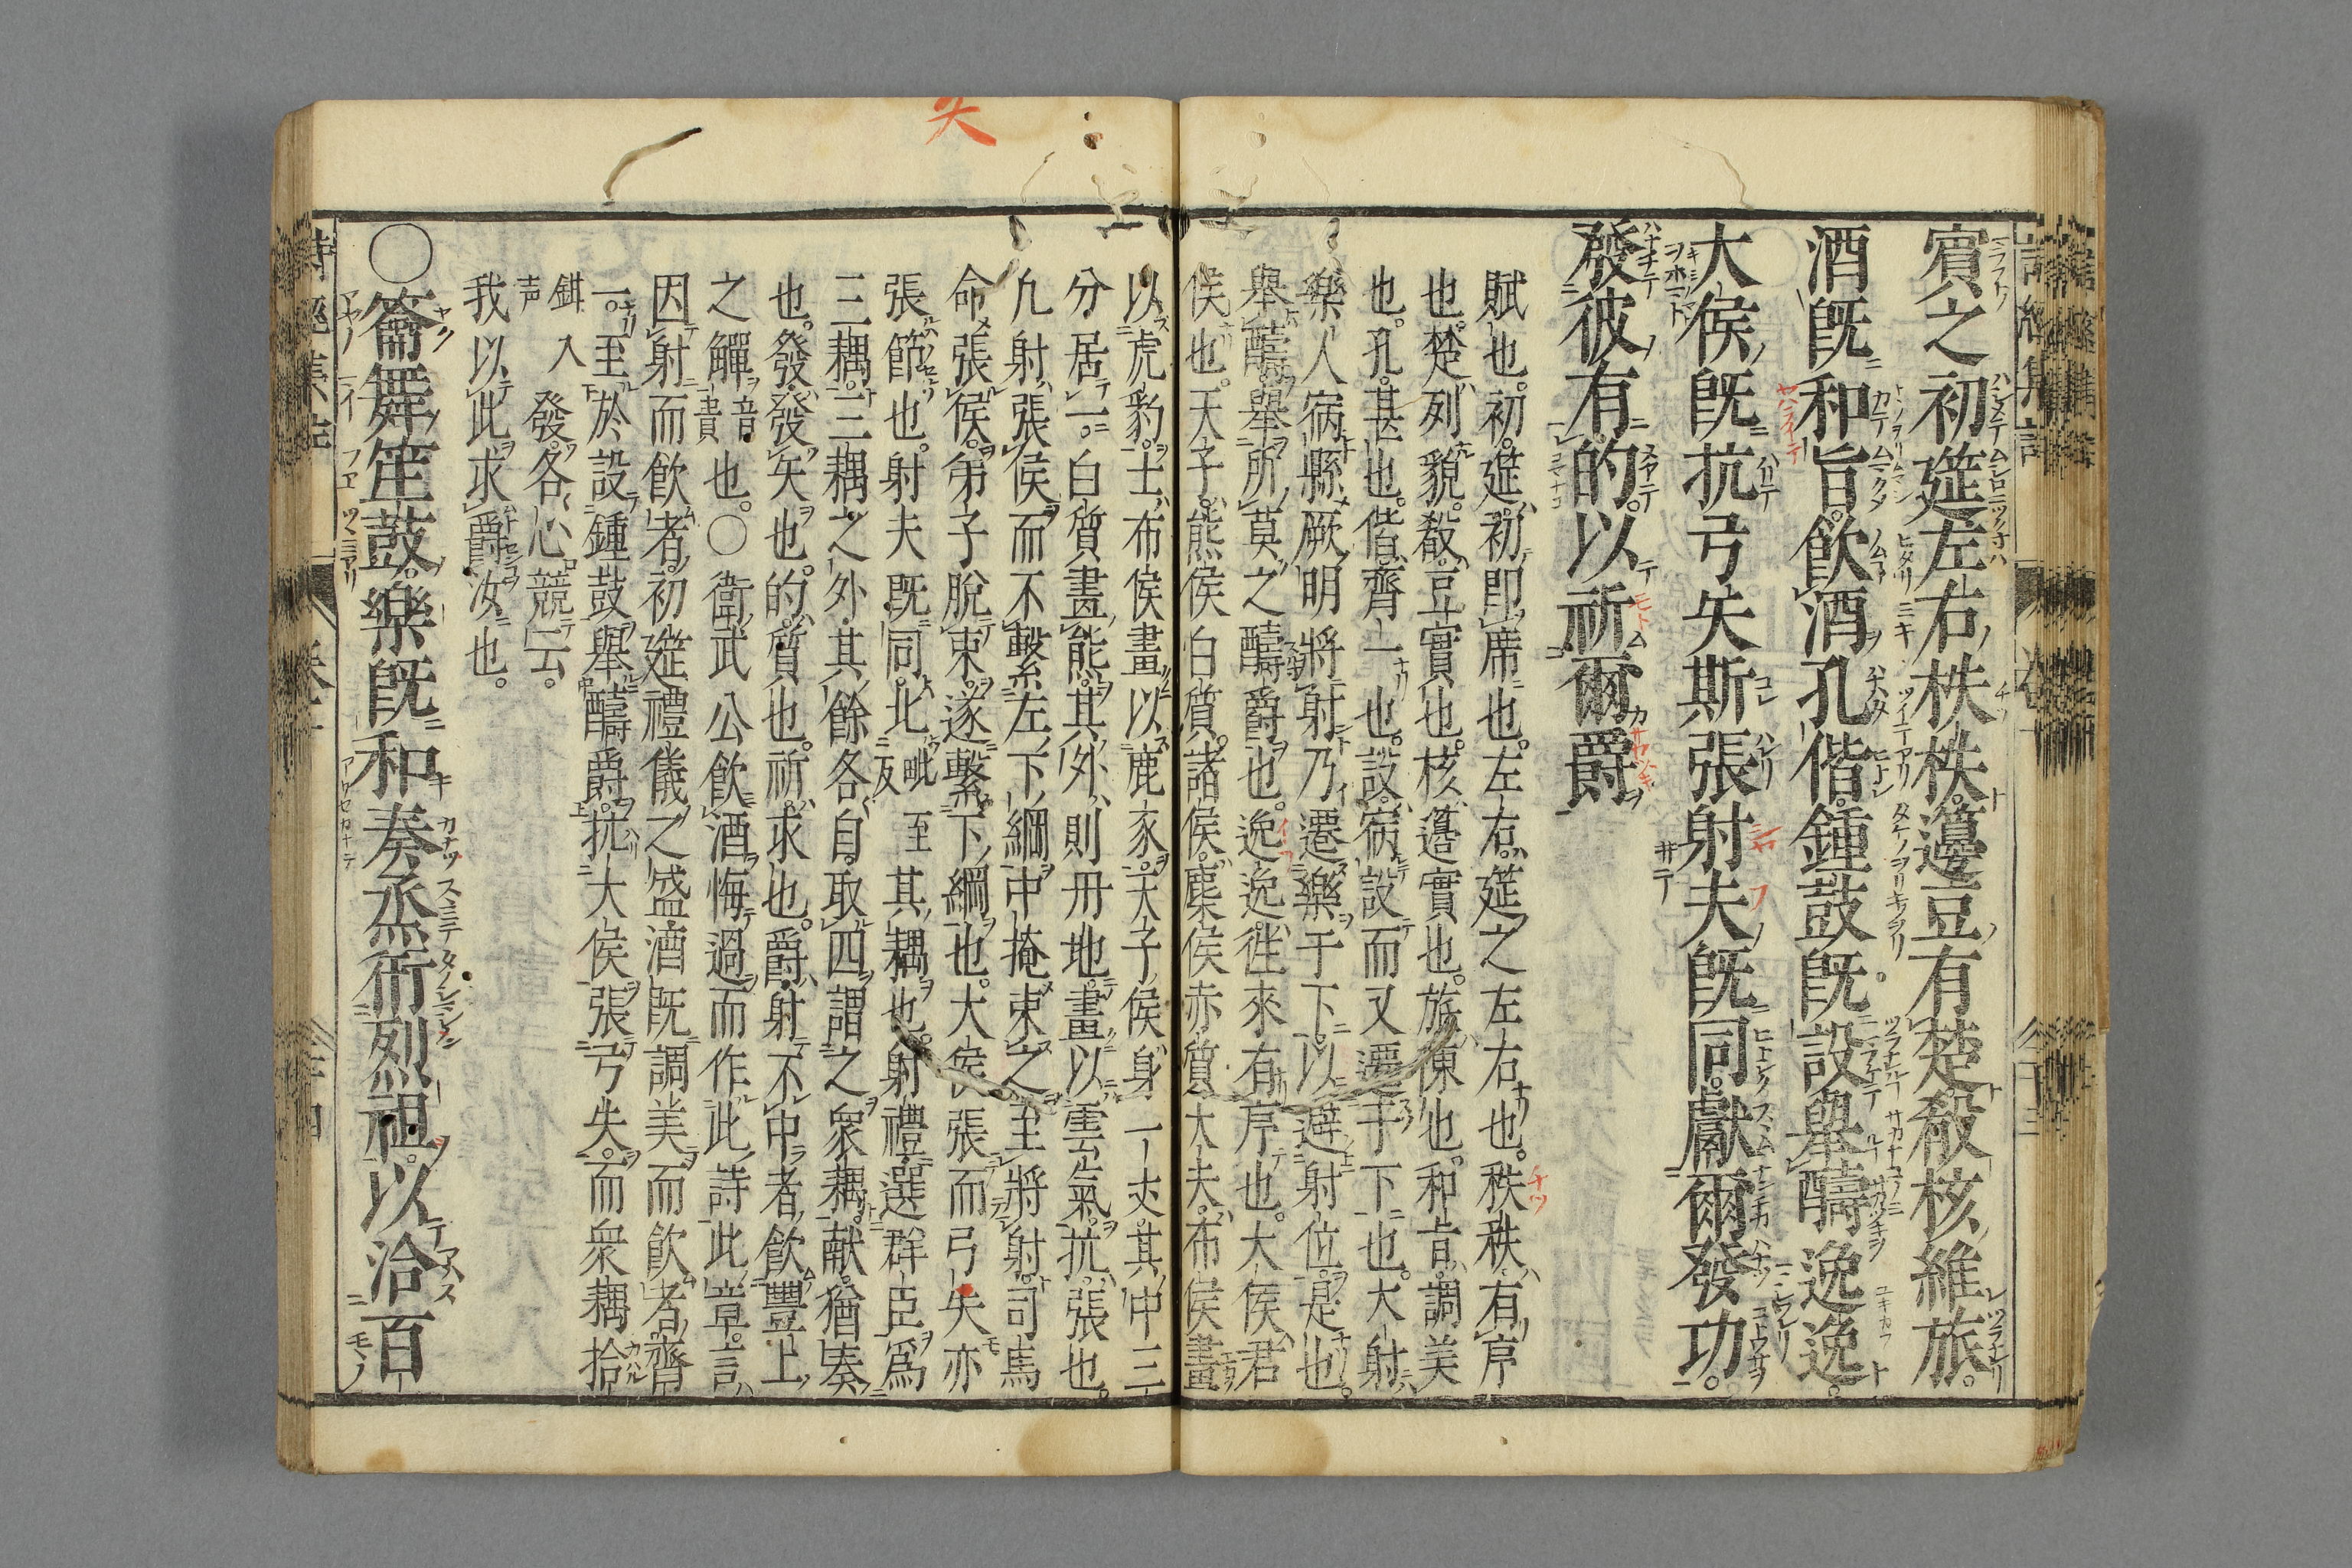 賓之初筵左右秩秩籩豆有楚殽核維旅。
酒既和旨飲酒孔偕鍾鼓既設舉醻逸逸。
大侯既抗弓矢斯張射夫既同獻爾發功。
發彼有的以祈爾爵
賦也。初筵初即席也。左右筵之左右也。秩秩有序
也。楚列貌。殽豆實也。核籩實也。旅陳也。和旨調美
也。孔甚也。偕齊一也。設宿設而又遷于下也。大射
樂人宿縣厥明將射乃遷樂于下。以避射位。是也。
舉醻舉所奠之醻爵也。逸逸徃來有序也。大侯君
侯也。天子。熊侯白質。諸侯。麋侯赤質大夫。布侯畫
以虎豹。士布侯畫以鹿豕。天子侯身一丈。其中三
分居一。白質畫熊。其外則丹地。畫以雲氣。抗張也。
凢射張侯而不繫左下綱中掩束之至將射。司馬
命張侯。弟子脫束。遂繫下綱也。大侯張而弓矢亦
張節也。射夫既同。比毗至反其耦也。射禮選群臣爲
三耦三耦之外其餘各自取四謂之衆耦獻猶奏
也。發發矢也。的質也。祈求也。爵射不中者飲豐上
之觶音書也。〇衛武公飲酒悔過而作此詩此章言
因射而飲者初筵禮儀之盛酒既調美而飲者齊
一。至於設鍾鼓舉醻爵抗大侯張弓矢。而衆耦拾
鉷入声發各心競云。
我以此求爵汝也。
〇籥舞笙鼓樂既和奏烝衎烈祖。以洽百